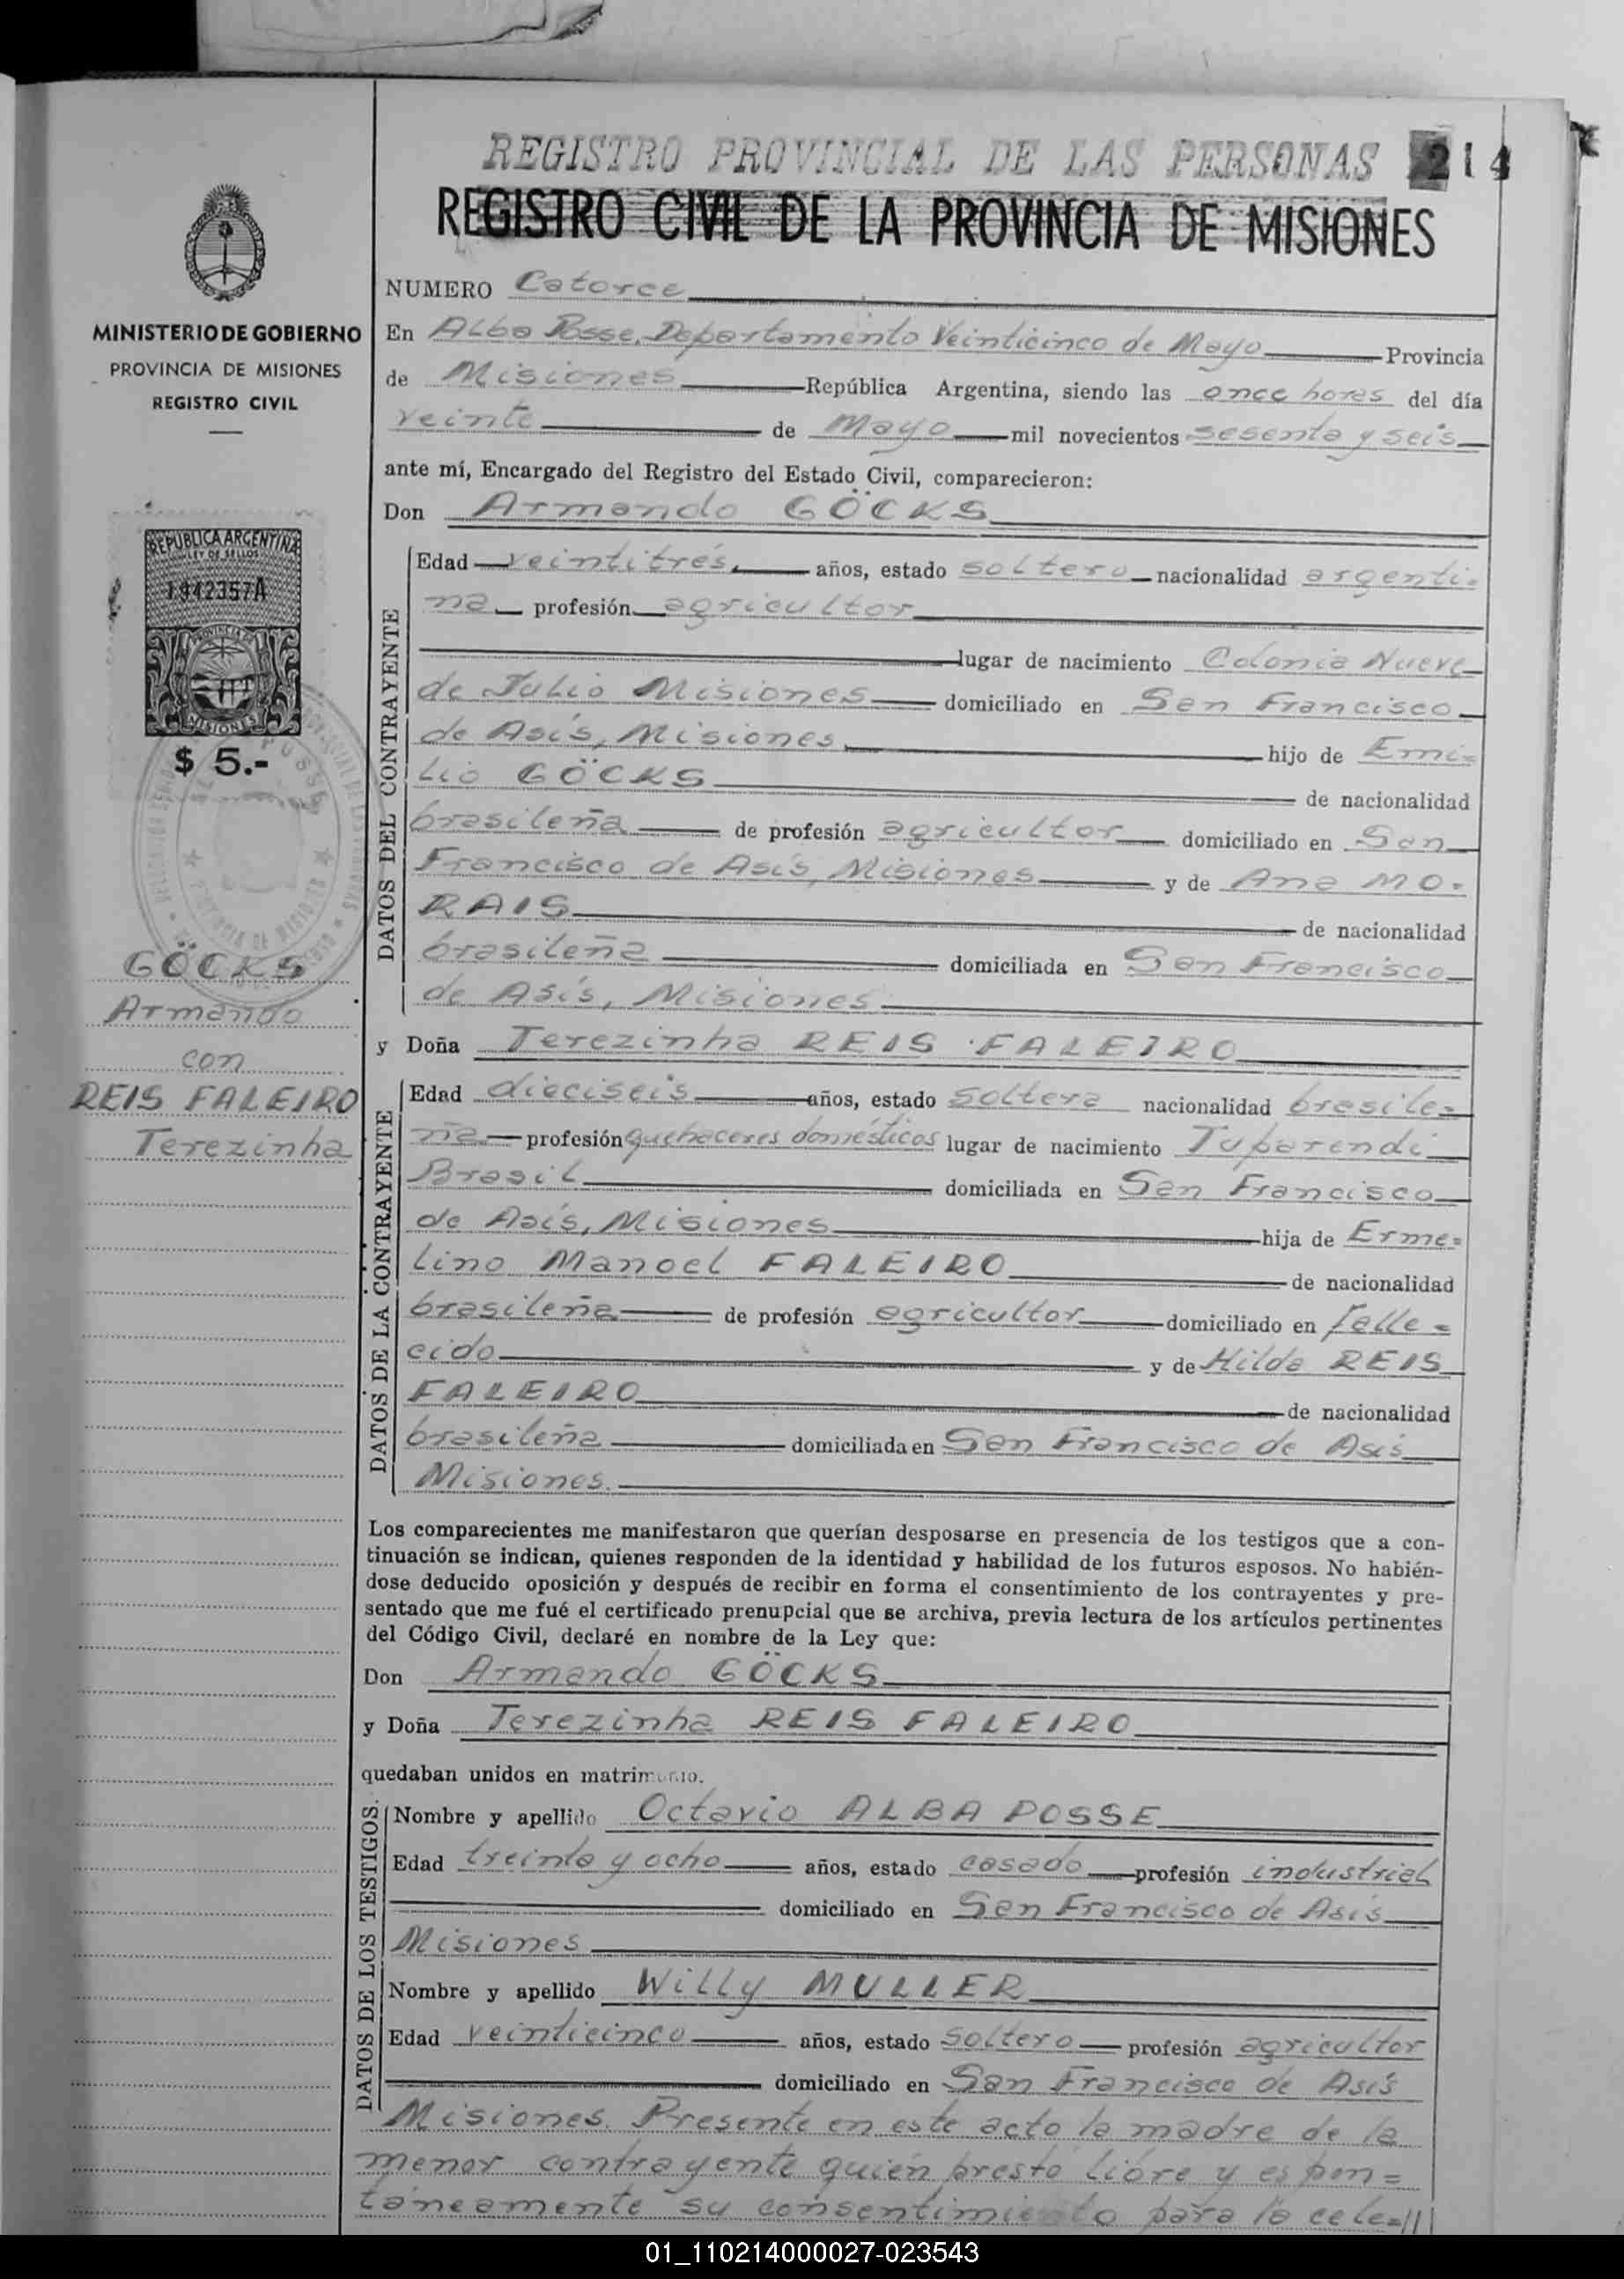 REGISTRO PROVINCIAL DE LAS PERSONAS 214
REGISTRO CIVIL DE LA PROVINCIA DE MISIONES
MINISTERIO DE GOBIERNO
PROVINCIA DE MISIONES
REGISTRO CIVIL
REPUBLICA ARGENTINA
LEY DE SELLOS
1942357A
PROVINCIA DE
MISIONES
$ 5.-
GÖCKS
Armando
con
REIS FALEIRO
Terezinha
NUMERO Catorce
En Alba Posse, Departamento Veinticinco de Mayo Provincia
de Misiones República Argentina, siendo las once horas del día
veinte de Mayo mil novecientos sesenta y seis
ante mí, Encargado del Registro del Estado Civil, comparecieron:
Don Armando GÖCKS
DATOS DEL CONTRAYENTE
Edad veintitrés años, estado soltero nacionalidad argenti=
na profesión agricultor
lugar de nacimiento Colonia Nueve
de Julio Misiones domiciliado en San Francisco
de Asís, Misiones hijo de Emi=
lio GÖCKS de nacionalidad
brasileña de profesión agricultor domiciliado en San
Francisco de Asís, Misiones y de Ana MO=
RAIS de nacionalidad
brasileña domiciliada en San Francisco
de Asís, Misiones
y Doña Terezinha REIS FALEIRO
DATOS DE LA CONTRAYENTE
Edad dieciseis años, estado soltera nacionalidad brasile=
ña profesión quehaceres domésticos lugar de nacimiento Tuparendi
Brasil domiciliada en San Francisco
de Asís, Misiones hija de Erme=
lino Manoel FALEIRO de nacionalidad
brasileña de profesión agricultor domiciliado en falle=
cido y de Hilda REIS
FALEIRO de nacionalidad
brasileña domiciliada en San Francisco de Asís
Misiones.
Los comparecientes me manifestaron que querían desposarse en presencia de los testigos que a con-
tinuación se indican, quienes responden de la identidad y habilidad de los futuros esposos. No habién-
dose deducido oposición y después de recibir en forma el consentimiento de los contrayentes y pre-
sentado que me fué el certificado prenupcial que se archiva, previa lectura de los artículos pertinentes
del Código Civil, declaré en nombre de la Ley que:
Don Armando GÖCKS
y Doña Terezinha REIS FALEIRO
quedaban unidos en matrimonio.
DATOS DE LOS TESTIGOS.
Nombre y apellido Octavio ALBA POSSE
Edad treinta y ocho años, estado casado profesión industrial
domiciliado en San Francisco de Asís
Misiones
Nombre y apellido Willy MULLER
Edad veinticinco años, estado soltero profesión agricultor
domiciliado en San Francisco de Asís
Misiones. Presente en este acto la madre de la
menor contrayente quién prestó libre y espon=
táneamente su consentimiento para la cele=//
01_110214000027-023543